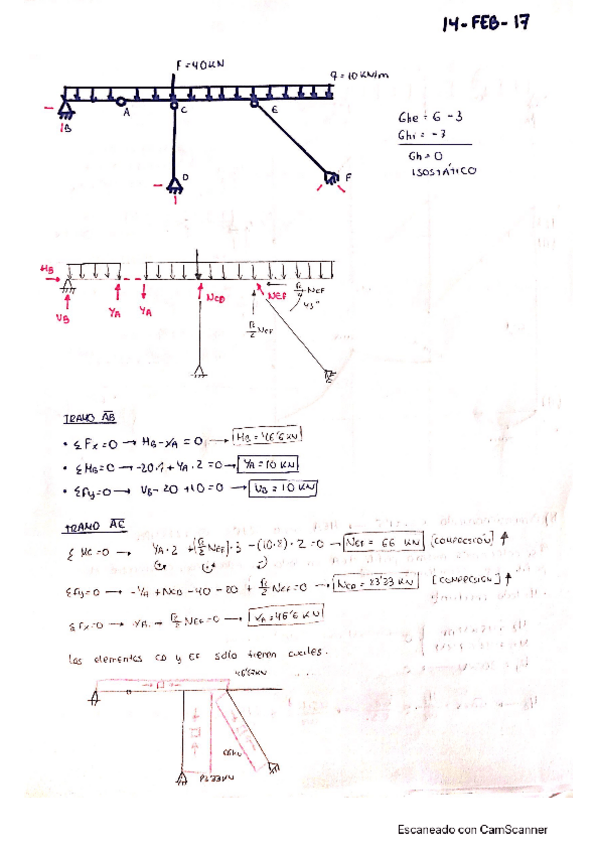 14-FEB-17
F=40KN
q=10KN/m
B A C E
D F
Ghe = 6 - 3
Ghi = -3
Gh=0
ISOSTÁTICO
HB
VB YA YA NCD NEF √2/2 NEF
45°
√2/2 NEF
TRAMO AB
• ΣFx=0 → HB-XA=0 → HB=46'6 KN
• ΣMB=0 → -20·1+YA·2=0 → YA=10 KN
• ΣFy=0 → VB-20+10=0 → VB=10 KN
TRAMO AC
Σ MC=0 → YA·2 + [√2/2 NEF]·3 -(10·8)·2=0 → NEF= 66 KN [COMPRESIÓN] ↑
ΣFy=0 → -YA+NCD-40-20+ √2/2 NEF=0 → NCD=23'33 KN [COMPRESIÓN] ↑
ΣFx=0 → √2/2 NEF=0 → =46'6 KN
Los elementos CD y EF solo tienen axiles.
46'67KN
66KN
Escaneado con CamScanner